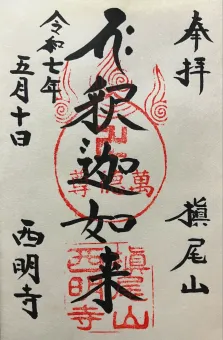 奉拝
槇尾山
釈迦如来
令和七年
五月十日
西明寺
槇尾山
西明寺